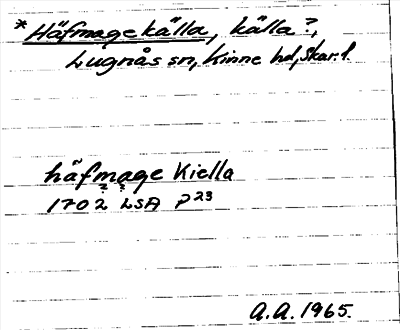 *Häfmagekälla, källa?,
Lugnås sn, Kinne hd, Skar. l.
häfmage Kiella
1702 LSA P23
A.A. 1965.